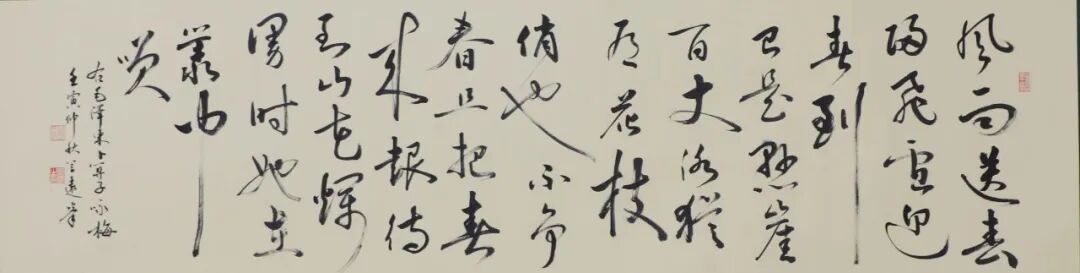 风雨送春
归飞雪迎
春到
已是悬崖
百丈冰犹
有花枝
俏也不争
春且把春
来报待
到山花烂
漫时她在
丛中
笑
右毛泽东卜算子咏梅
壬寅仲秋